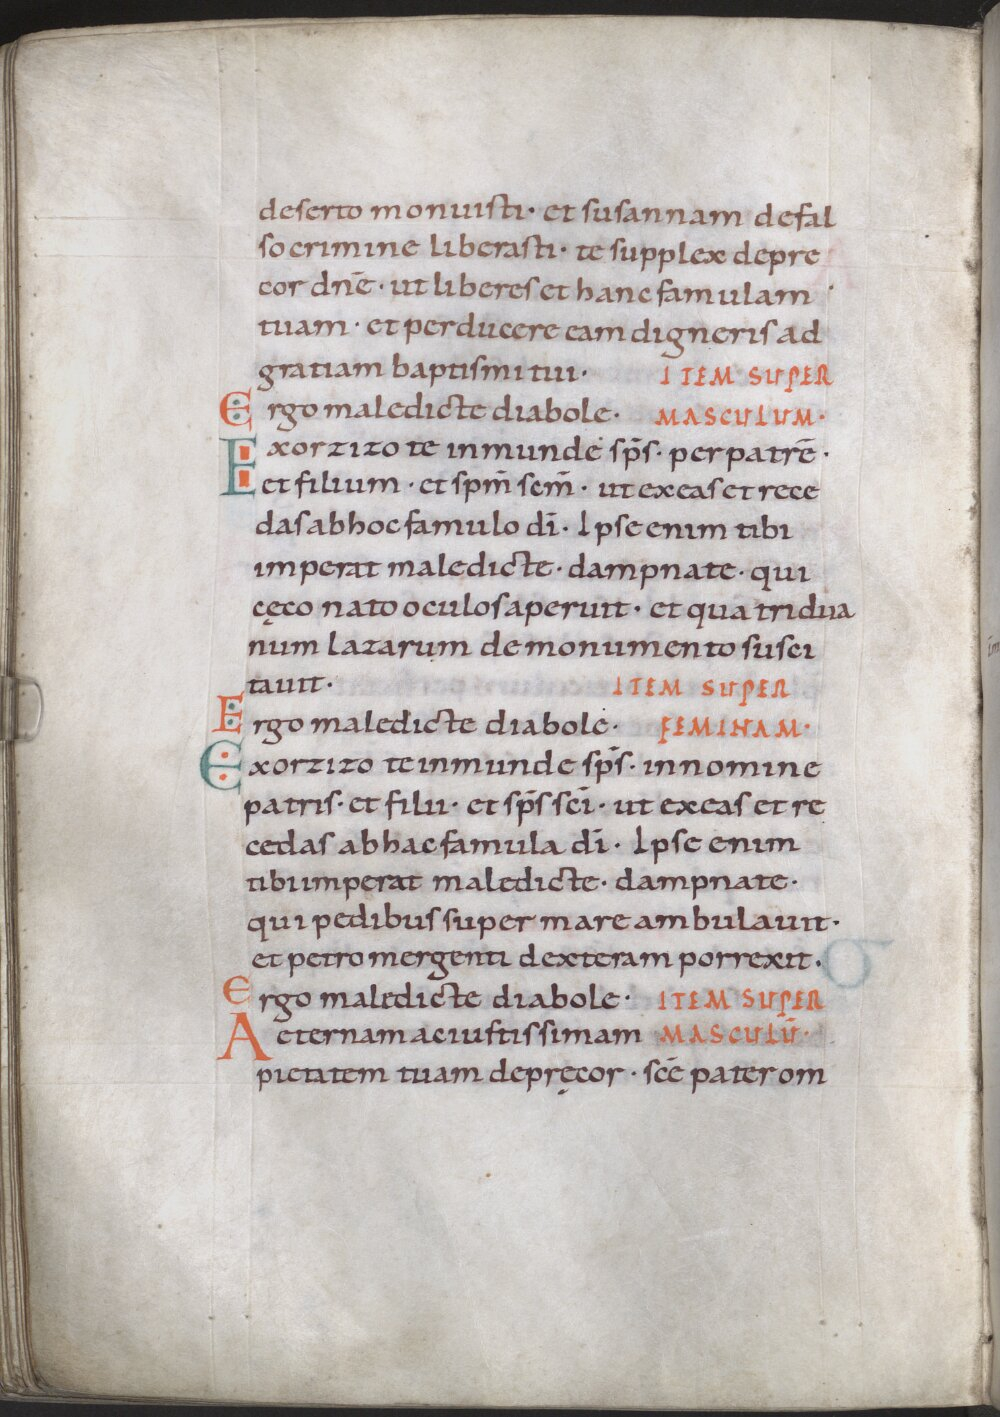 deserto monuisti· et susannam defal
so crimine liberasti· te supplex depre
cor dn̄e· ut liberes et hanc famulam
tuam· et perducere eam digneris ad
gratiam baptismi tui· ITEM SUPER
Ergo maledicte diabole· MASCULUM·
Exorzizo te inmunde sp̄s· per patrē·
et filium· et sp̄m sc̄m· ut exeas et rece
das ab hoc famulo dī· Ipse enim tibi
imperat maledicte· dampnate· qui
cęco nato oculos aperuit· et quatridua
num lazarum de monumento susci
tauit· ITEM SUPER
Ergo maledicte diabole· FEMINAM·
Exorzizo te inmunde sp̄s· in nomine
patris· et filii· et sp̄s sc̄i· ut exeas et re
cedas ab hac famula dī· Ipse enim
tibi imperat maledicte· dampnate·
qui pedibus super mare ambulauit·
et petro mergenti dexteram porrexit·
Ergo maledicte diabole· ITEM SUPER
Aeternam ac iustissimam MASCULŪ·
pietatem tuam depręcor· sc̄e pater om